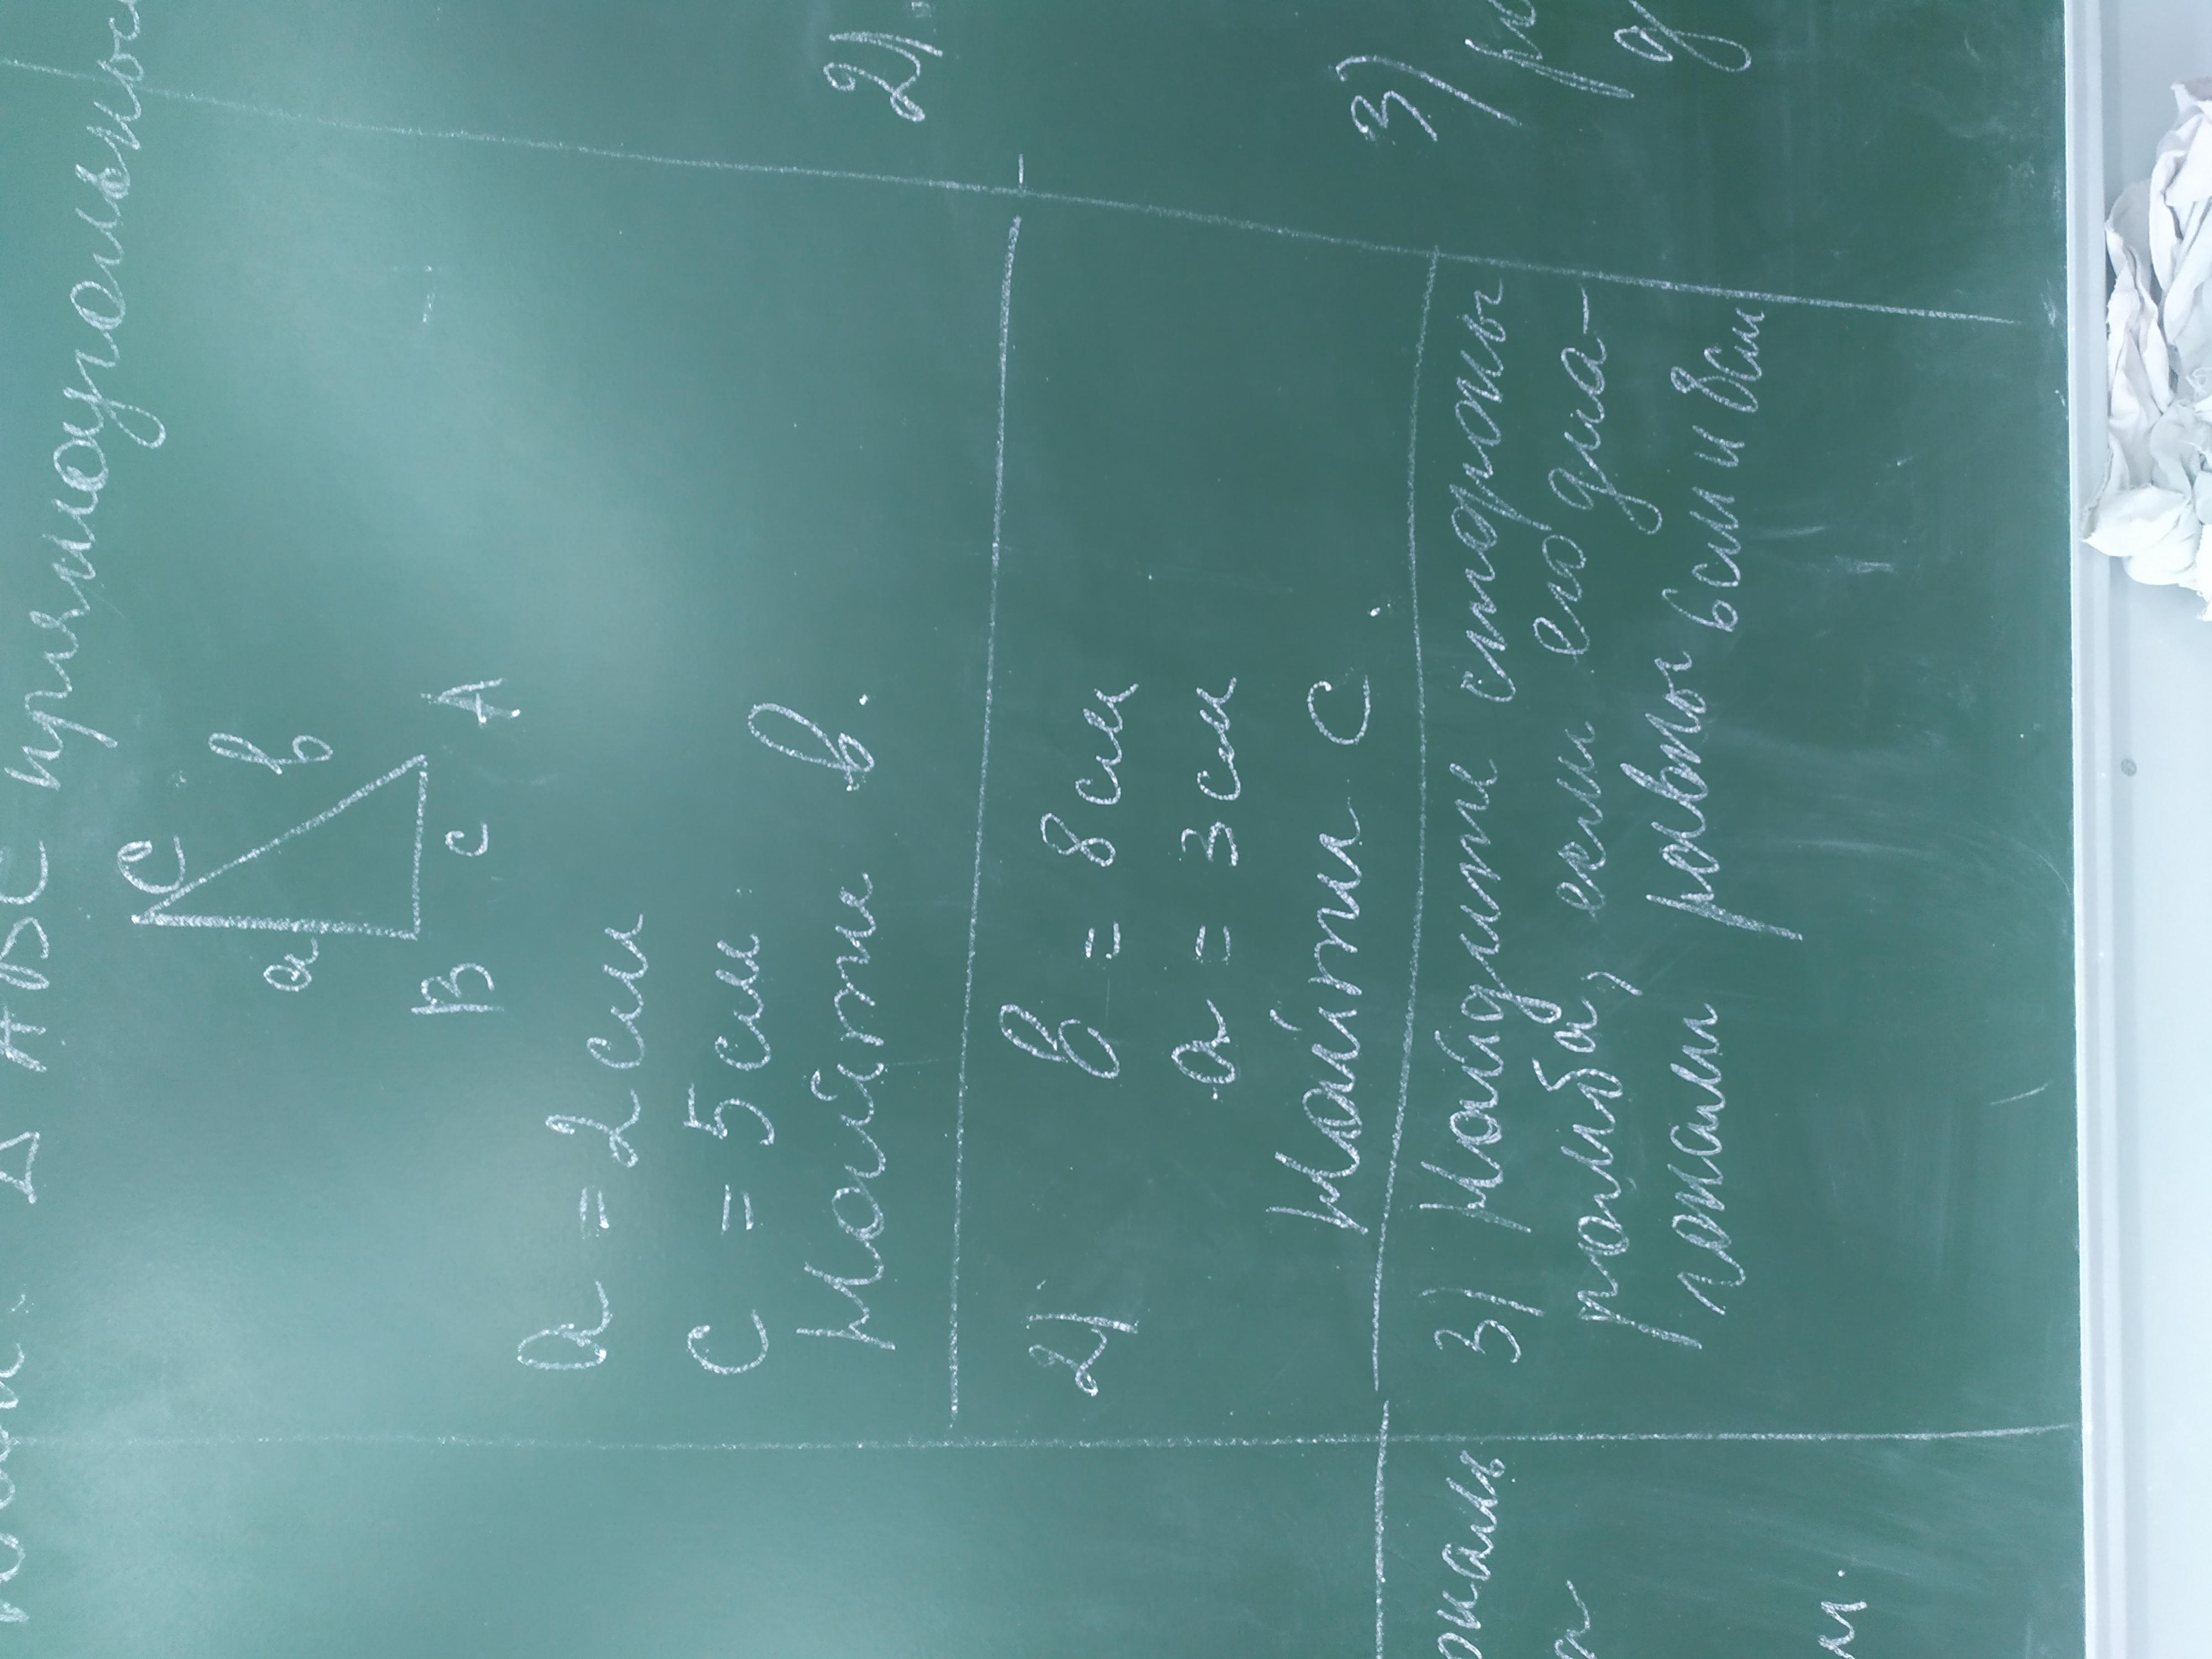 Δ ABC прямоугольно
C
a
b
B
c
A
a = 2см
c = 5см
Найти b.
2) b = 8см
a = 3см
Найти c
3) Найдите стороны
ромба, если его диа-
гонали равны 6см и 8см
ональ
а
м.
2)
3)